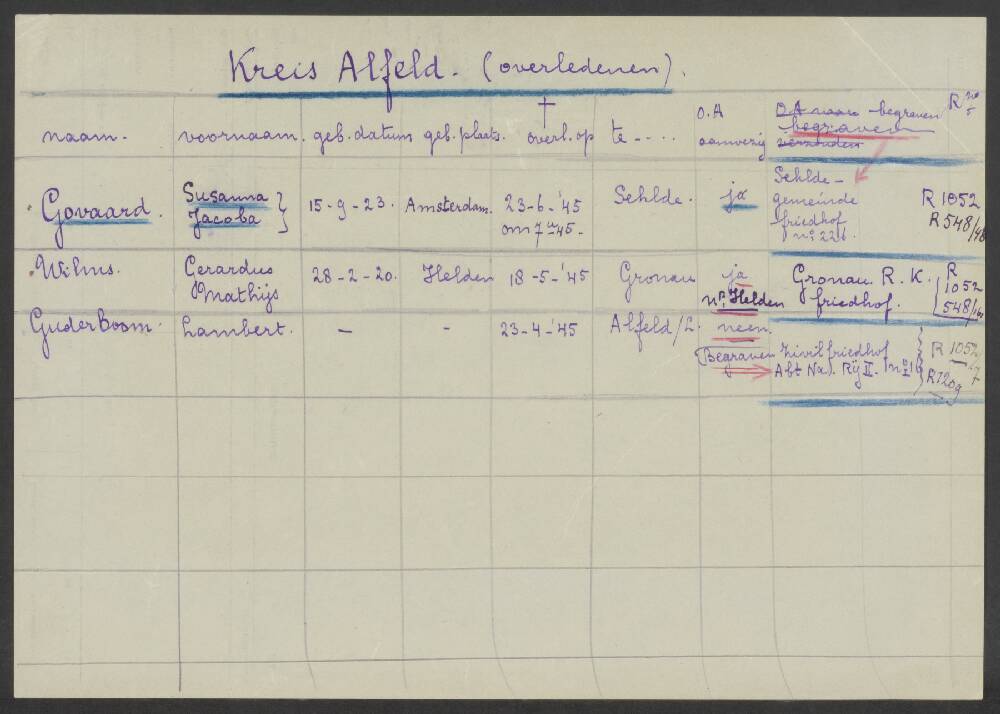 Kreis Alfeld. (overledenen).
naam. voornaam. geb. datum geb. plaats. † overl. op te ---- O.A aanwezig begraven begraven R no
Govaard. Susanna Jacoba } 15-9-23. Amsterdam. 23-6-'45 om 7 45. Sehlde. ja Sehlde - gemeinde friedhof no. 226. R 1052 R 548/
Wilms. Gerardus Mathijs 28-2-20. Helden 18-5-'45 Gronau ja nr. Helden Gronau R.K. friedhof. R 1052 548/
Guderboom. Lambert. - - 23-4-'45 Alfeld/L. neen.
Begraven zivilfriedhof Abt Rij II. R 1052 R 1209